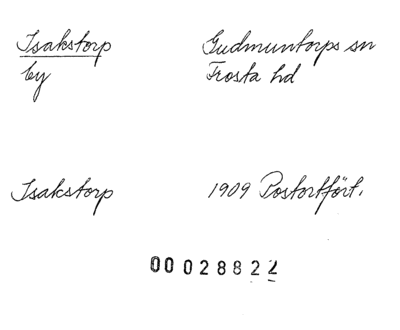 Isakstorp Gudmuntorps sn
by Frosta hd
Isakstorp 1909 Postortfört.
00 028822